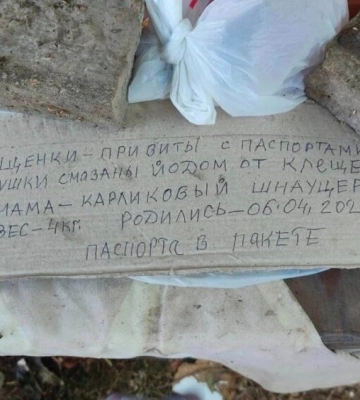 ЩЕНКИ – ПРИВИТЫ С ПАСПОРТАМИ
УШКИ СМАЗАНЫ ЙОДОМ ОТ КЛЕЩЕ
МАМА – КАРЛИКОВЫЙ ШНАУЦЕР
ВЕС – 4КГ. РОДИЛИСЬ – 06.04,202
ПАСПОРТА В ПАКЕТЕ